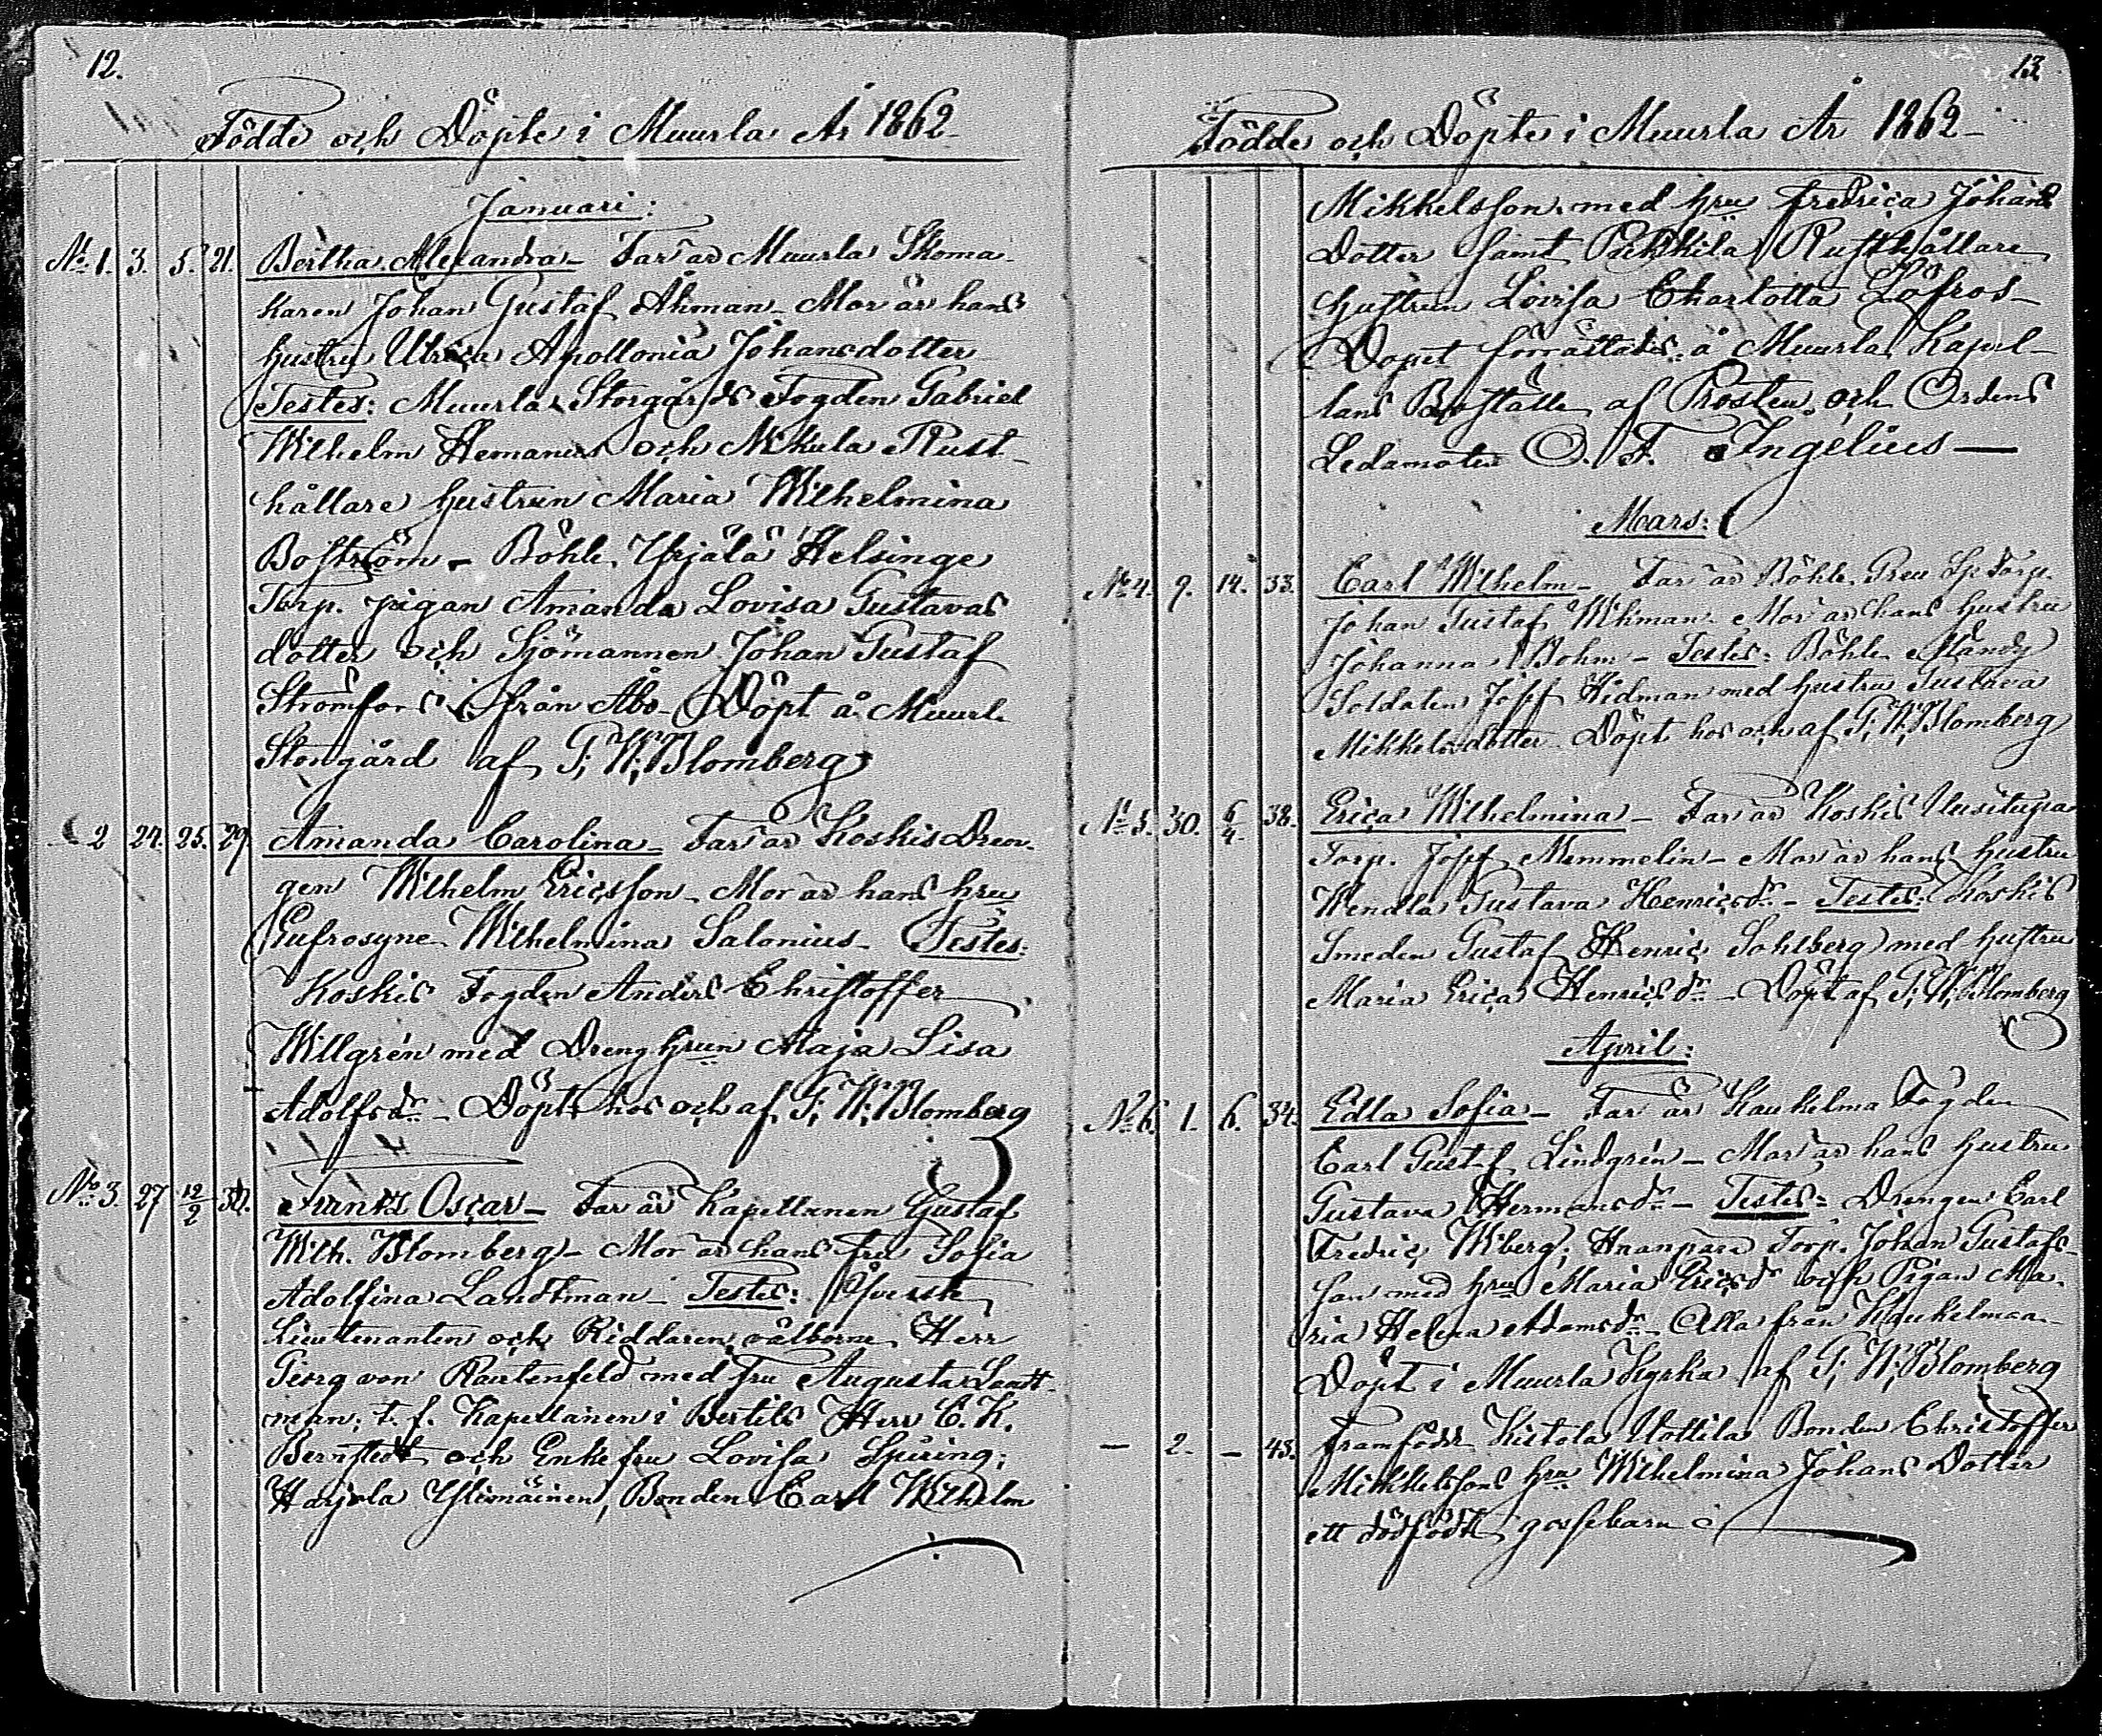 12.
Födde och Döpte i Muurla År 1862
Januari:
No 1. 3. 5. 21. Bertha Alexandra – Far är Muurla Skoma-
karen Johan Gustaf Åhman – Mor är hans
hustru Ulrica Apollonia Johansdotter
Testes: Muurla Storgårds Fogden Gabriel
Wilhelm Hemanus och Nikula Rust-
hållare hustrun Maria Wilhelmina
Boström – Böhle Yrjälä Helsinge
Torp. pigan Amanda Lovisa Gustavas
dotter och Sjömannen Johan Gustaf
Strömfors från Åbo – Döpt å Muurla
Storgård af G; W; Blomberg
2 24. 25. 29. Amanda Carolina – Far är Koskis Dren-
gen Wilhelm Ericsson – Mor är hans hru
Eufrosyne Wilhelmina Salonius – Testes:
Koskis Fogden Anders Christoffer
Willgrén med Dreng hrun Maja Lisa
Adolfsdr – Döpt hos och af G; W; Blomberg
No 3. 27 12/2 Frantz Oscar – Far är Kapellanen Gustaf
Wilh. Blomberg – Mor är hans fru Sofia
Adolfina Landtman – Testes: Öfverste
Lieutenanten och Riddaren välborne Herr
Georg von Rautenfeld med fru Augusta Landt-
man; t. f. Kapellanen i Bertils Herr C. K.
och Enkefru Lovisa Spüring;
Harjola Ylimäinen, Bonden Carl Wilhelm
13
Födde och Döpte i Muurla År 1862 –
Mikkelsson med hru Fredrica Johans
Dotter samt Pukkila Rusthållare
hustrun Lovisa Charlotta Löfroos –
Dopet förrättades å Muurla Kapel-
lans Boställe af Prosten och Ordens
Ledamoten O. F. Ingelius —
Mars:
No 4. 9. 14. 33. Carl Wilhelm – Far är Böhle Torp.
Johan Gustaf Wikman. Mor är hans hustru
Johanna Bohm – Testes: Böhle
Soldaten Josef Widman med hustru Gustava
Mikkelsdotter – Döpt hos och af G; W; Blomberg
No 5. 30. 6/4. 38. Erica Wilhelmina – Far är Koskis Uusitupa
Torp. Josef Memmelin – Mor är hans hustru
Wendla Gustava Henricsdr – Testes: Koskis
Smeden Gustaf Henric Sohlberg med hustru
Maria Erica Henricsdr – Döpt af G; W; Blomberg
April:
No 6. 1. 6. 34. Edla Sofia – Far är Kaukelma Fogden
Carl Gustaf Lindgrén – Mor är hans hustru
Gustava Hermansdr – Testes: Drengen Carl
Fredric Wiberg; Haanpää Torp. Johan Gustafs-
son med hru Maria Ericsdr och Pigan Ma-
ria Helena Adamsdr – Alla från Kaukelmaa –
Döpt i Muurla Kyrka af G; W; Blomberg
— 2. – 43. Framfödde Kistola Uottila Bonden Christoffer
Mikkelssons hru Wilhelmina Johans Dotter
ett dödfödt gossebarn